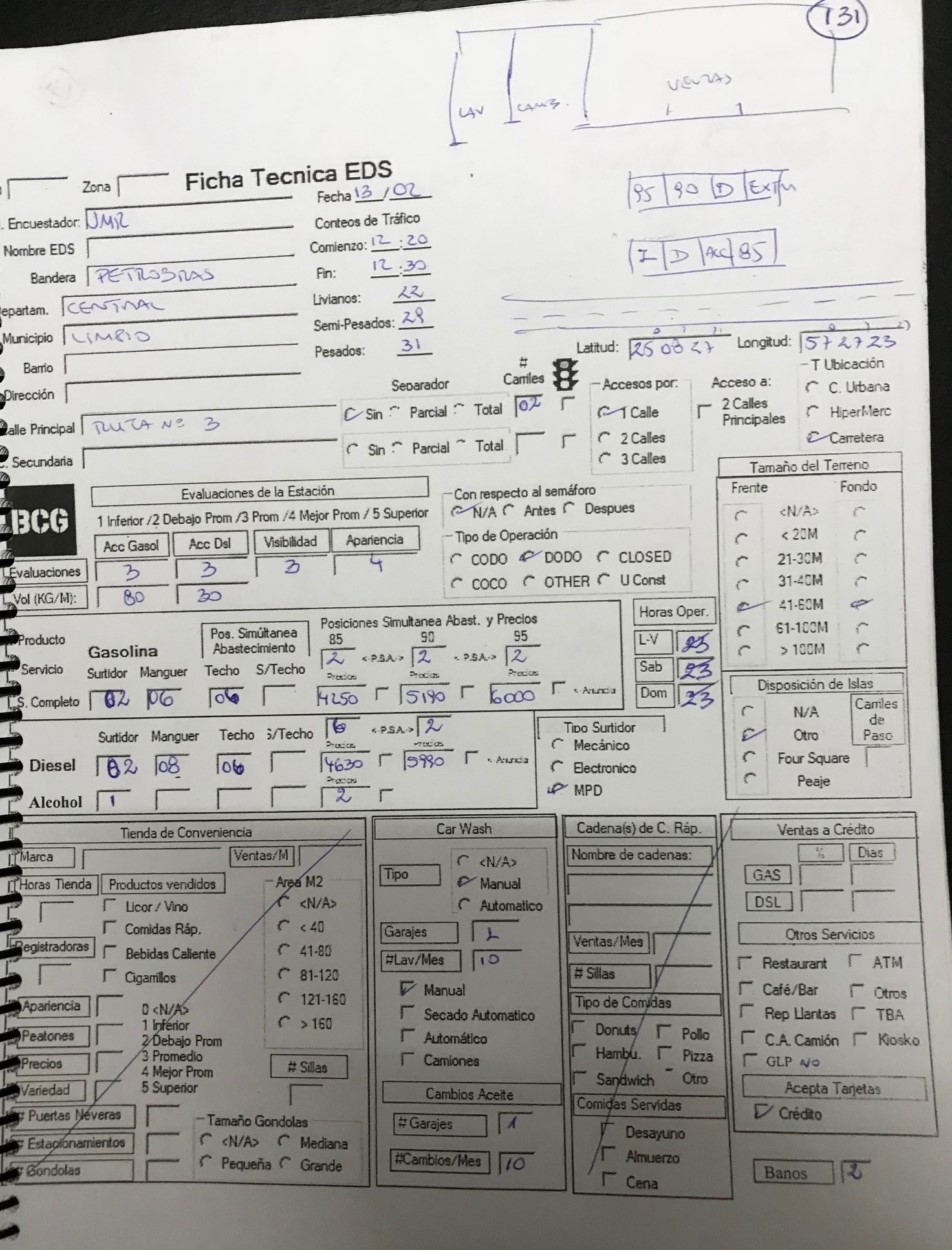 131
LAV CAMB. VENTAS
Zona Ficha Tecnica EDS
Fecha 13 / 02
95 90 D
Encuestador: JMR
Conteos de Tráfico
Nombre EDS
Comienzo: 12 : 20
I D 85
Bandera PETROBRAS
Fin: 12 : 30
epartam. CENTRAL
Livianos: 22
Municipio LIMPIO
Semi-Pesados: 29
Barrio
Pesados: 31
Latitud: 25 08 27 Longitud: 57 27 23
Dirección
Separador # Carriles Accesos por: Acceso a: T Ubicación
alle Principal RUTA Nº 3 Sin Parcial Total 02 1 Calle 2 Calles Principales C. Urbana
2 Calles HiperMerc
. Secundaria Sin Parcial Total 3 Calles Carretera
BCG
Evaluaciones de la Estación
1 Inferior /2 Debajo Prom /3 Prom /4 Mejor Prom / 5 Superior
Acc Gasol Acc Dsl Visibilidad Apariencia
Evaluaciones 3 3 3 4
Vol (KG/M): 80 30
Con respecto al semáforo
N/A Antes Despues
Tipo de Operación
CODO DODO CLOSED
COCO OTHER U Const
Tamaño del Terreno
Frente Fondo
<N/A>
< 20M
21-30M
31-40M
41-60M
61-100M
> 100M
Producto Gasolina Pos. Simúltanea Abastecimiento
Posiciones Simultanea Abast. y Precios
85 90 95
2 <-P.S.A.-> 2 <-P.S.A.-> 2
Servicio Surtidor Manguer Techo S/Techo Precios Precios Precios
S. Completo 02 06 06 4250 5190 6000 <- Anuncia
Horas Oper.
L-V 23
Sab 23
Dom 23
Surtidor Manguer Techo S/Techo 6 <-P.S.A.-> 2
Precios Precios
Diesel 02 08 06 4630 5990 <- Anuncia
Precios
Alcohol 1 2
Tipo Surtidor
Mecánico
Electronico
MPD
Disposición de Islas
N/A Carriles de Paso
Otro
Four Square
Peaje
Tienda de Conveniencia
Marca Ventas/M
Horas Tienda Productos vendidos Area M2
Licor / Vino <N/A>
Comidas Ráp. < 40
Registradoras Bebidas Caliente 41-80
Cigarrillos 81-120
121-160
> 160
Apariencia 0 <N/A>
1 Inferior
Peatones 2 Debajo Prom
Precios 3 Promedio
4 Mejor Prom # Sillas
Variedad 5 Superior
# Puertas Neveras Tamaño Gondolas
# Estacionamientos <N/A> Mediana
# Gondolas Pequeña Grande
Car Wash
Tipo <N/A>
Manual
Automatico
Garajes 1
#Lav/Mes 10
Manual
Secado Automatico
Automático
Camiones
Cambios Aceite
# Garajes 1
#Cambios/Mes 10
Cadena(s) de C. Ráp.
Nombre de cadenas:
Ventas/Mes
# Sillas
Tipo de Comidas
Donuts Pollo
Hambu. Pizza
Sandwich Otro
Comidas Servidas
Desayuno
Almuerzo
Cena
Ventas a Crédito
% Dias
GAS
DSL
Otros Servicios
Restaurant ATM
Café/Bar Otros
Rep Llantas TBA
C.A. Camión Kiosko
GLP NO
Acepta Tarjetas
Crédito
Banos 2